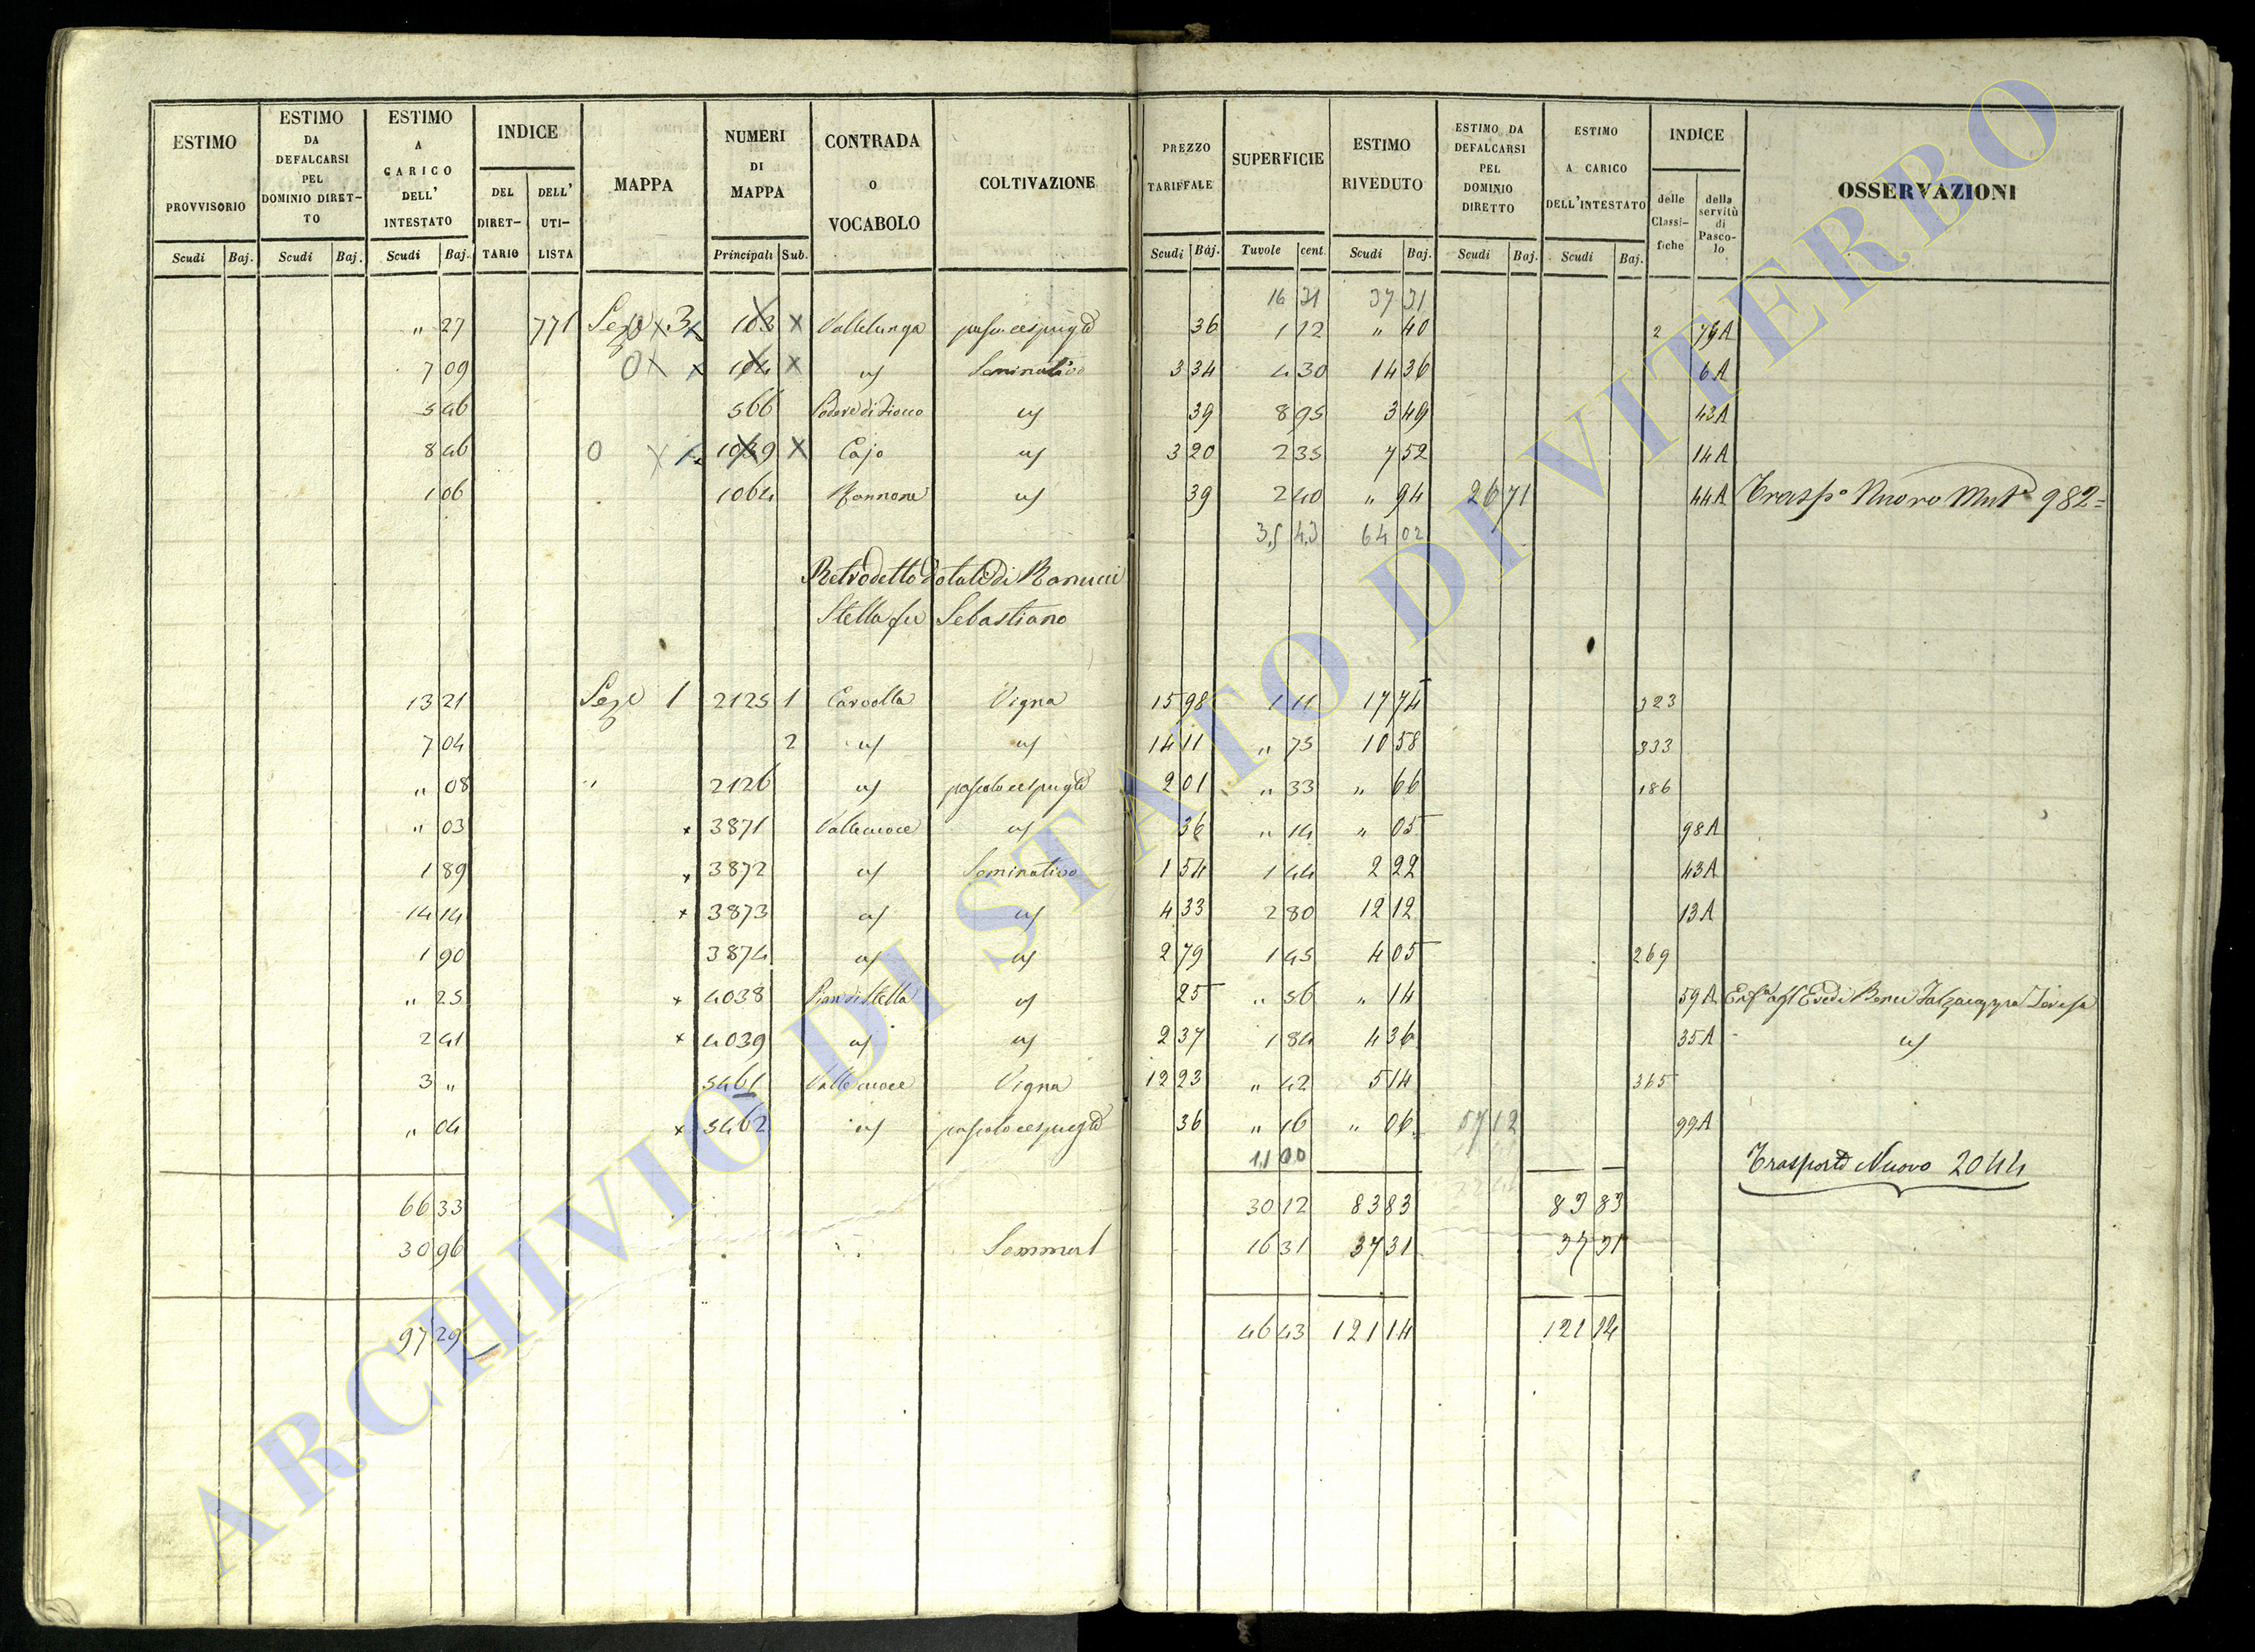 ESTIMO PROVVISORIO Scudi Baj.
ESTIMO DA DEFALCARSI PEL DOMINIO DIRET-TO Scudi Baj.
ESTIMO A CARICO DELL' INTESTATO Scudi Baj.
INDICE DEL DIRET-TARIO DELL' UTI-LISTA
MAPPA
NUMERI DI MAPPA Principali Sub.
CONTRADA O VOCABOLO
COLTIVAZIONE
PREZZO TARIFFALE Scudi Baj.
SUPERFICIE Tavole cent.
ESTIMO RIVEDUTO Scudi Baj.
ESTIMO DA DEFALCARSI PEL DOMINIO DIRETTO Scudi Baj.
ESTIMO A CARICO DELL'INTESTATO Scudi Baj.
INDICE delle Classi-fiche della servitù di Pasco-lo
OSSERVAZIONI
16 31 37 31
" 27 771 Sez 3 103 Vallelunga 36 1 12 " 40 2
7 09 104 Seminativo 3 34 4 30 14 36 6A
5 46 566 39 8 95 3 49 43A
8 46 1039 Cajo 3 20 2 35 7 52 14A
1 06 1064 39 2 40 " 94 26 71 44A Trasp° Nuovo 982=
35 43 64 02
Retrodetto dotale di Ranucci
Stella fu Sebastiano
13 21 Sez 1 2125 1 Vigna 15 98 1 11 17 74 323
7 04 2 14 11 " 75 10 58 333
" 08 " 2126 2 01 " 33 " 66 186
" 03 x 3871 36 " 14 " 05 98A
1 89 x 3872 Seminativo 1 54 1 44 2 22 43A
14 14 x 3873 4 33 2 80 12 12 13A
1 90 3874 2 79 1 45 4 05 269
" 25 x 4038 Pian di Stella 25 " 56 " 14 59A
2 41 x 4039 2 37 1 84 4 36 35A
3 " 5461 Vigna 12 23 " 42 5 14 365
" 04 x 5462 36 " 16 " 06 57 12 99A
11 00
Trasporto Nuovo 2044
66 33 30 12 83 83 83 83
30 96 16 31 37 31 37 31
97 29 46 43 121 14 121 14
ARCHIVIO DI STATO DI VITERBO